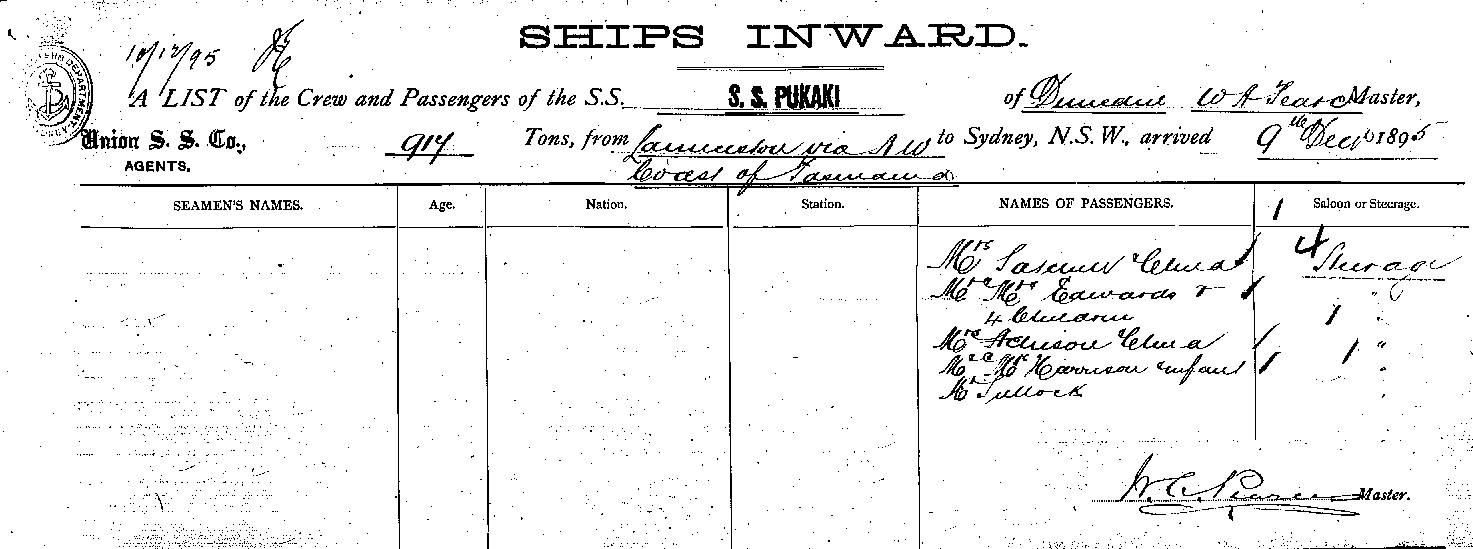 SHIPS INWARD.
10/12/95
A LIST of the Crew and Passengers of the S.S. S. S. PUKAKI of Dunedin W A Master,
Union S. S. Co., 914 Tons, from Launceston via N W to Sydney, N.S.W., arrived 9th Dec 1895
AGENTS.
Coast of Tasmania
SEAMEN'S NAMES. Age. Nation. Station. NAMES OF PASSENGERS. 1 Saloon or Steerage.
Mrs & Child 1 4 Steerage
Mr & Mrs Edwards & 1 "
4 Children 1 "
Mrs Achison & Child 1 "
Mr & Mrs Harrison & infant 1 1 "
Mr Tullock
W. C. Master.